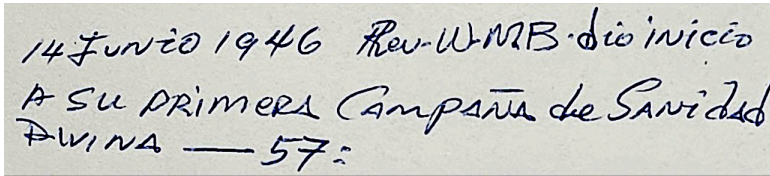 14 Junio 1946 Rev-W-MB. dio inicio
A SU PRIMERA CAMPAÑA de SANidad
DIVINA — 57: